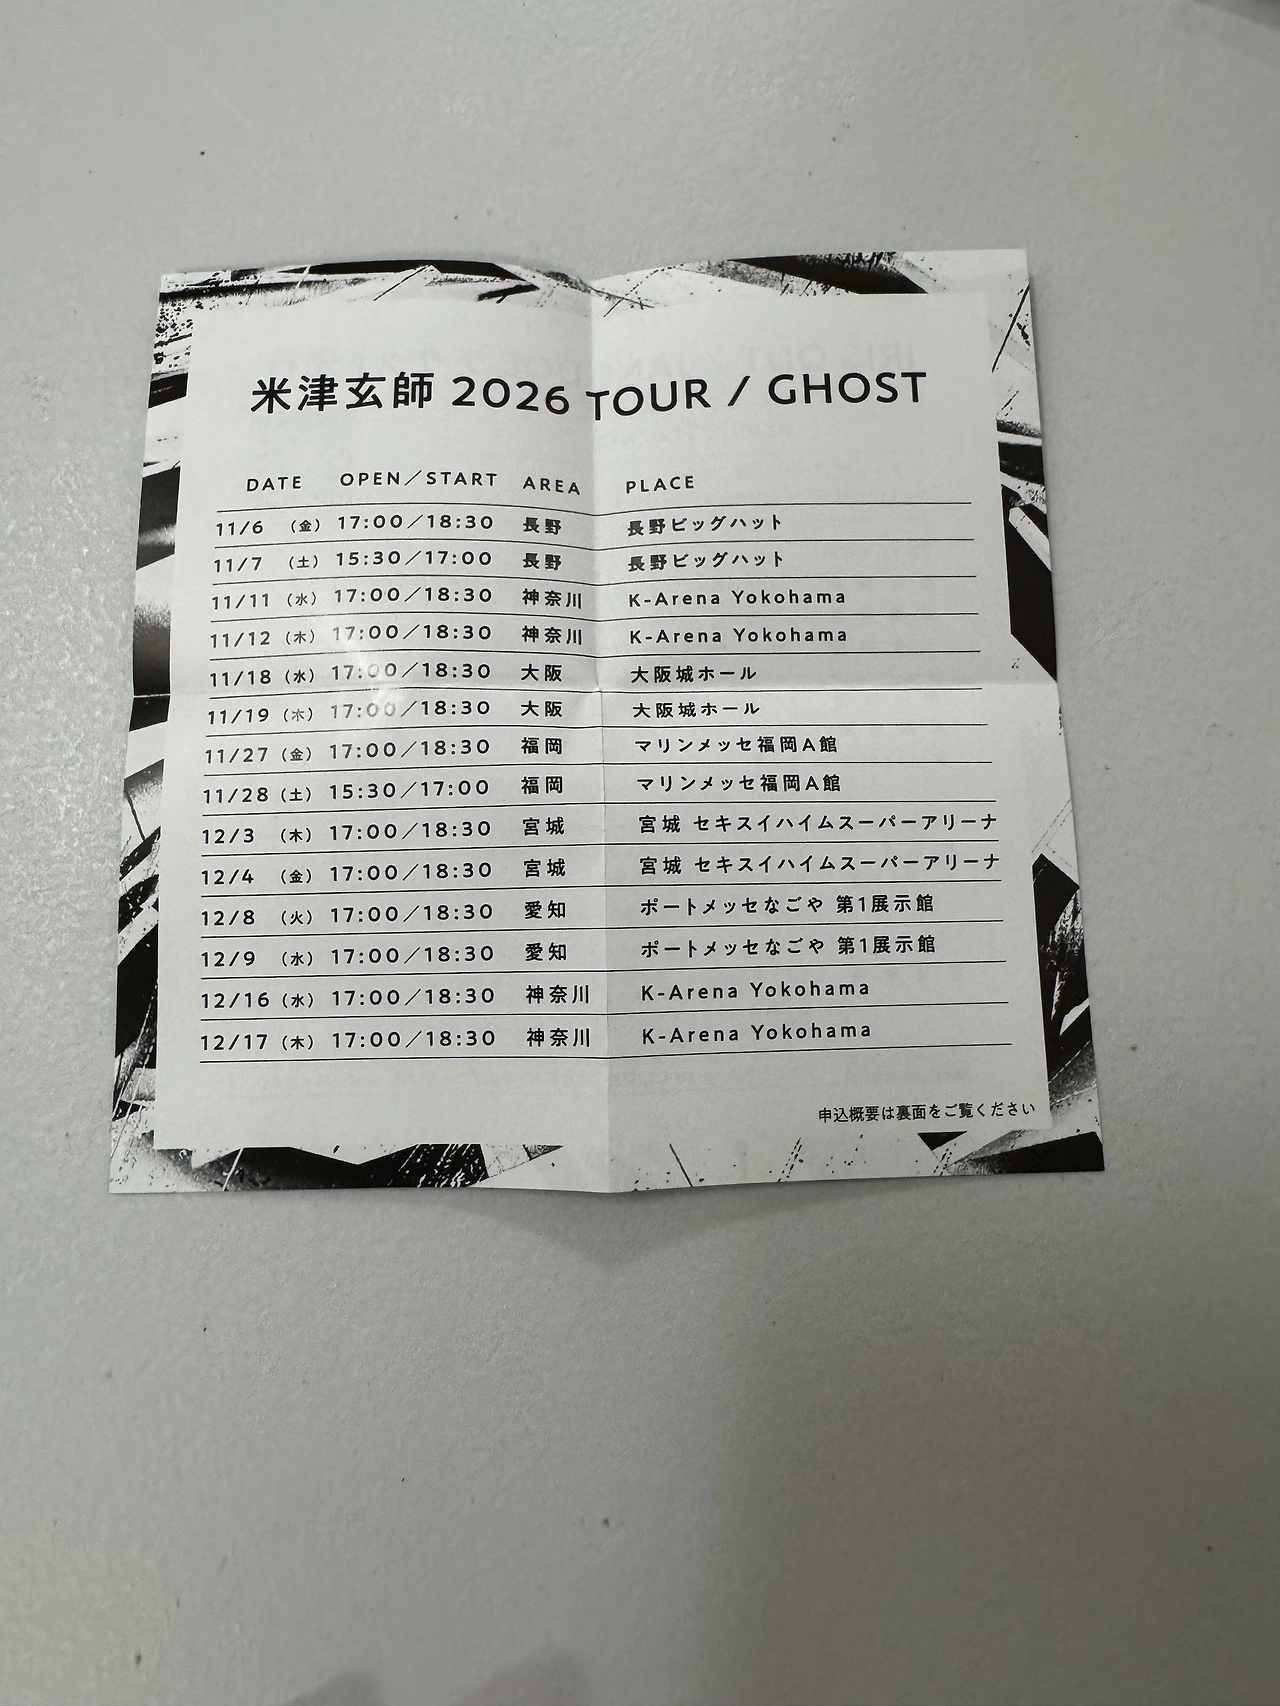 米津玄師 2026 TOUR / GHOST
DATE OPEN／START AREA PLACE
11/6 （金） 17:00／18:30 長野 長野ビッグハット
11/7 （土） 15:30／17:00 長野 長野ビッグハット
11/11 （水） 17:00／18:30 神奈川 K-Arena Yokohama
11/12 （木） 17:00／18:30 神奈川 K-Arena Yokohama
11/18 （水） 17:00／18:30 大阪 大阪城ホール
11/19 （木） 17:00／18:30 大阪 大阪城ホール
11/27 （金） 17:00／18:30 福岡 マリンメッセ福岡A館
11/28 （土） 15:30／17:00 福岡 マリンメッセ福岡A館
12/3 （木） 17:00／18:30 宮城 宮城 セキスイハイムスーパーアリーナ
12/4 （金） 17:00／18:30 宮城 宮城 セキスイハイムスーパーアリーナ
12/8 （火） 17:00／18:30 愛知 ポートメッセなごや 第1展示館
12/9 （水） 17:00／18:30 愛知 ポートメッセなごや 第1展示館
12/16 （水） 17:00／18:30 神奈川 K-Arena Yokohama
12/17 （木） 17:00／18:30 神奈川 K-Arena Yokohama
申込概要は裏面をご覧ください